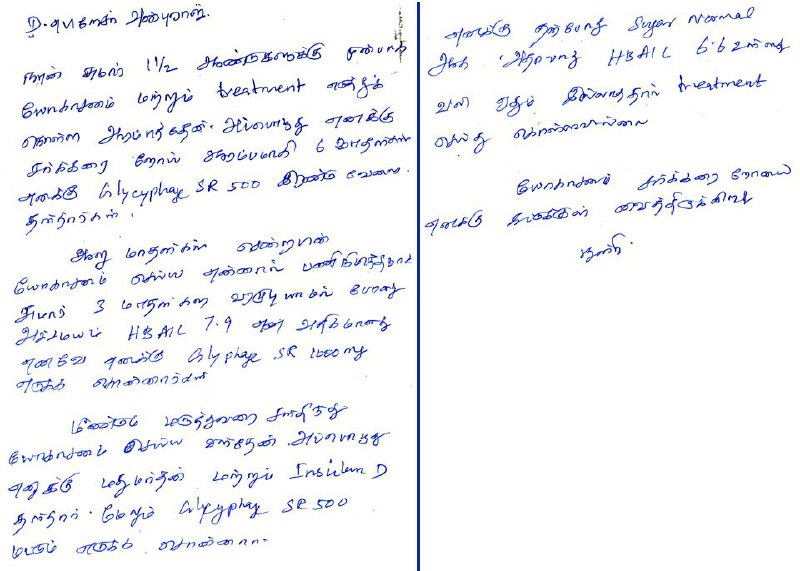 நான் சுமார் 1 1/2 ஆண்டுகளுக்கு முன்பாக
யோகாசனம் மற்றும் treatment எடுத்துக்
கொள்ள ஆரம்பித்தேன். அப்பொழுது எனக்கு
சர்க்கரை நோய் ஆரம்பமாகி 6 மாதங்கள்
எனக்கு Glycyphage SR 500 இரண்டு வேளை
தந்தார்கள்.
ஆறு மாதங்கள் சென்றபின்
யோகாசனம் செய்ய என்னால் பணிநிமித்தமாக
சுமார் 3 மாதங்கள் வரமுடியாமல் போனது
அச்சமயம் HBA1C 7.9 என அதிகமானது
எனவே எனக்கு Glycyphage SR 1000
எடுக்க சொன்னார்கள்
மீண்டும் மருத்துவரை சந்தித்து
யோகாசனம் செய்ய வந்தேன். அப்பொழுது
எனக்கு மதுமர்தின் மற்றும் Insulin D
தந்தார். மேலும் Glycyphage SR 500
மட்டும் எடுக்க சொன்னார்.
எனக்கு தற்போது Sugar Normal
ஆக அதாவது HBA1C 6.6 உள்ளது
வலி ஏதும் இல்லாததால் treatment
செய்து கொள்ளவில்லை
யோகாசனம் சர்க்கரை நோயை
எனக்கு வைத்திருக்கிறது
நன்றி.